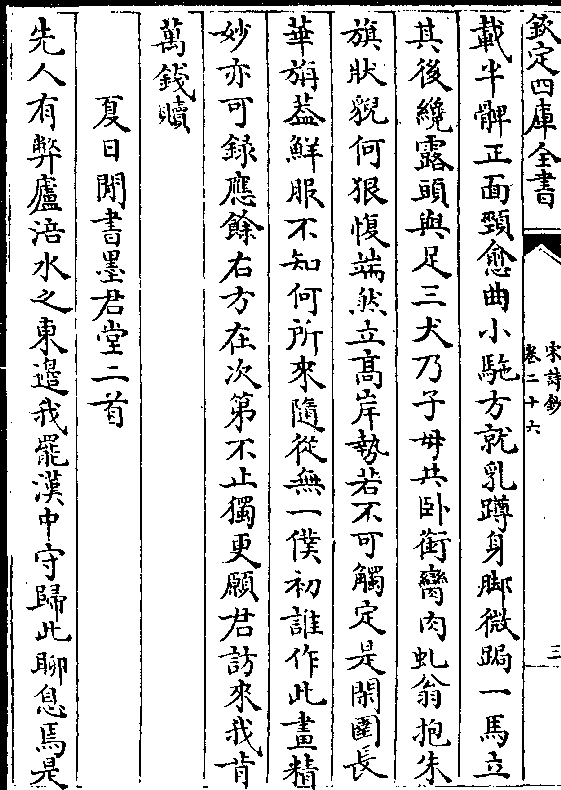 欽定四庫全書
宋詩鈔
卷二十六
三
載半髀正面頸愈曲小駞方就乳蹲身脚微跼一馬立
其後纔露頭與足三犬乃子母共卧銜臠肉虬翁抱朱
旗狀貎何狠愎端然立髙岸勢若不可觸定是閑圉長
華旃葢鮮服不知何所來隨從無一僕初誰作此畫精
妙亦可録應餘右方在次第不止獨更願君訪來我肯
萬錢贖
夏日閒書墨君堂二首
先人有弊廬涪水之東邉我罷漢中守歸此聊息焉是